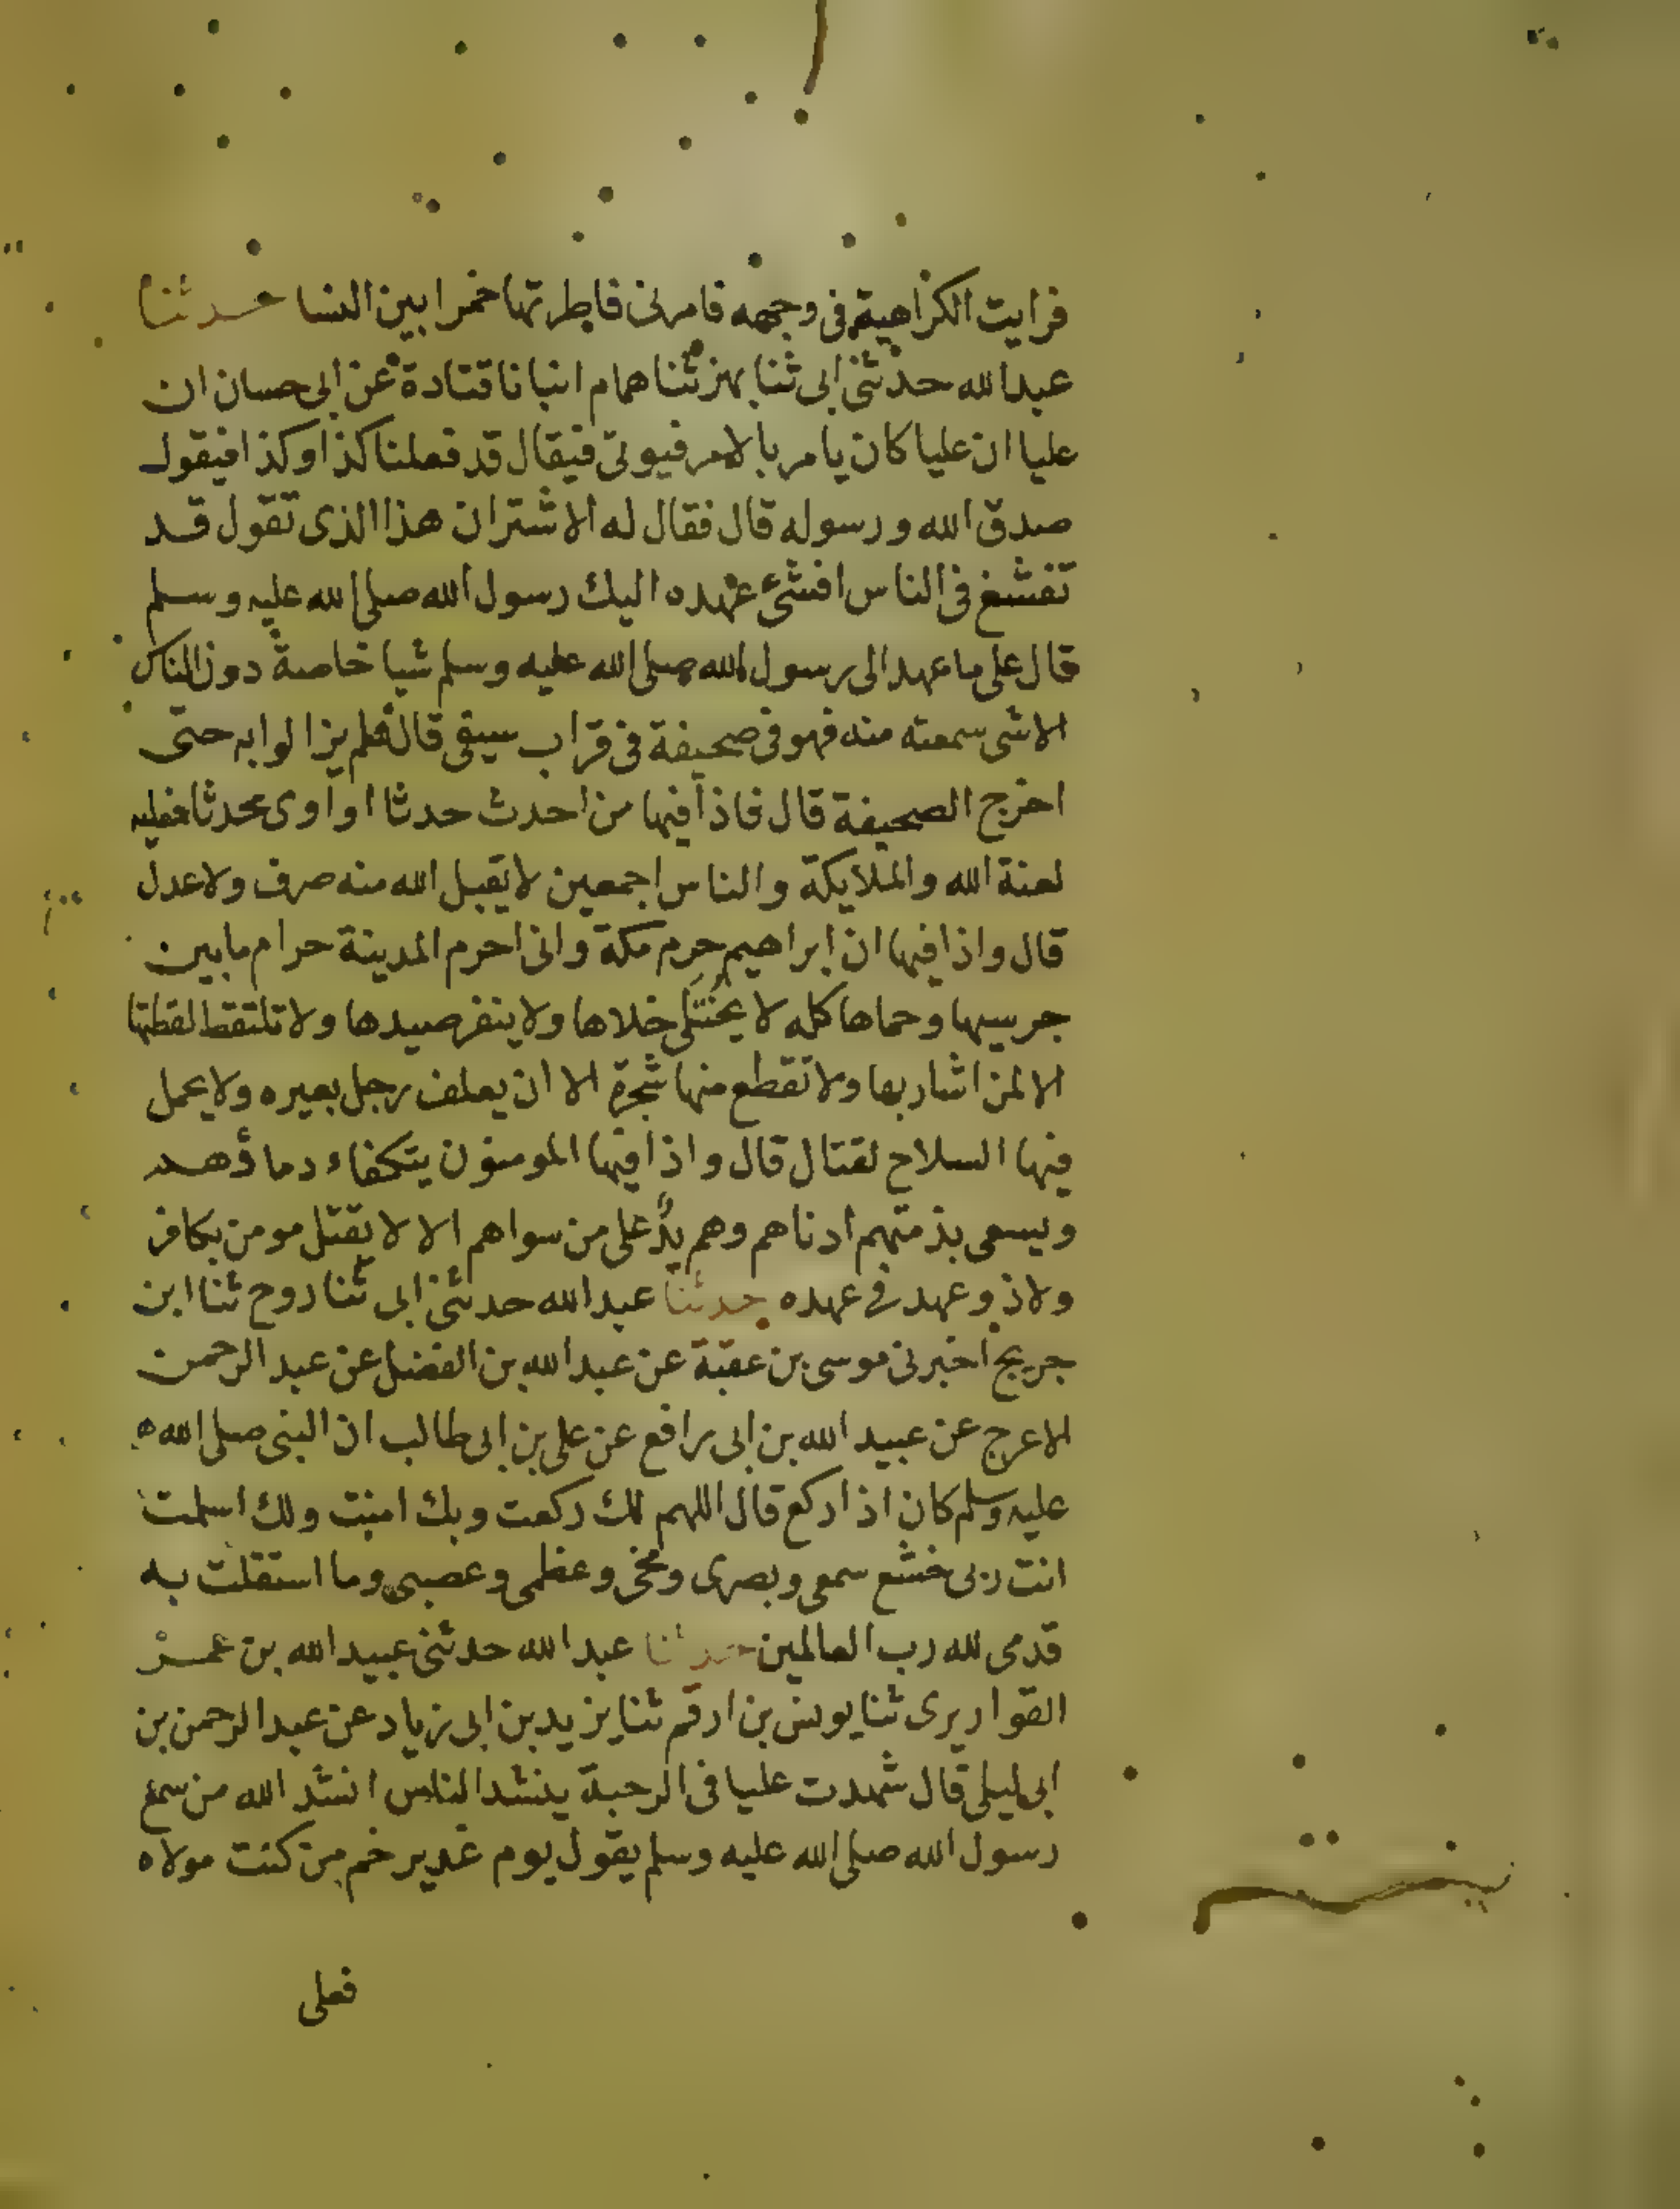 فرايت الكراهية فى وجهه فامرنى فاطرتها خمرا بين النسا حدثنا
عبد الله حدثنى ابى ثنا بهز ثنا همام انبانا قتادة عن ابى حسان ان
عليا ان عليا كان يامر بالامر فيوتى فيقال قد فعلنا كذا وكذا فيقول
صدق الله ورسوله قال فقال له الاشتر ان هذا الذى تقول قد
تفشغ فى الناس افشىء عهده اليك رسول الله صلى الله عليه وسلم
قال على ما عهد الى رسول الله صلى الله عليه وسلم شيا خاصة دون الناس
الا شى سمعته منه فهو فى صحيفة فى قراب سيفى قال فلم يزالوا به حتى
اخرج الصحيفة قال فاذا فيها من احدث حدثا او اوى محدثا فعليه
لعنة الله والملايكة والناس اجمعين لا يقبل الله منه صرف ولا عدل
قال واذا فيها ان ابراهيم حرم مكة وانى احرم المدينة حرام ما بين
حرسيها وحماها كله لا يُختَلَى خلاها ولا ينفر صيدها ولا تلتقط لقطتها
الا لمن اشار بها ولا تقطع منها شجرة الا ان يعلف رجل بعيره ولا يحمل
فيها السلاح لقتال قال واذا فيها المومنون يتكفاء دماؤهم
ويسعى بذمتهم ادناهم وهم يدٌ على من سواهم الا لا يقتل مومن بكافر
ولا ذو عهد فى عهده حدثنا عبد الله حدثنى ابى ثنا روح ثنا ابن
جريج اخبرنى موسى بن عقبة عن عبد الله بن الفضل عن عبد الرحمن
الاعرج عن عبيد الله بن ابى رافع عن على بن ابى طالب ان النبى صلى الله
عليه وسلم كان اذا ركع قال اللهم لك ركعت وبك امنت ولك اسلمت
انت ربى خشع سمعى وبصرى ومخى وعظمى وعصبى وما استقلت به
قدمى لله رب العالمين حدثنا عبد الله حدثنى عبيد الله بن عمر
القواريرى ثنا يونس بن ارقم ثنا يزيد بن ابى زياد عن عبد الرحمن بن
ابى ليلى قال شهدت عليا فى الرحبة ينشد الناس انشد الله من سمع
رسول الله صلى الله عليه وسلم يقول يوم غدير خم من كنت مولاه
فعلى